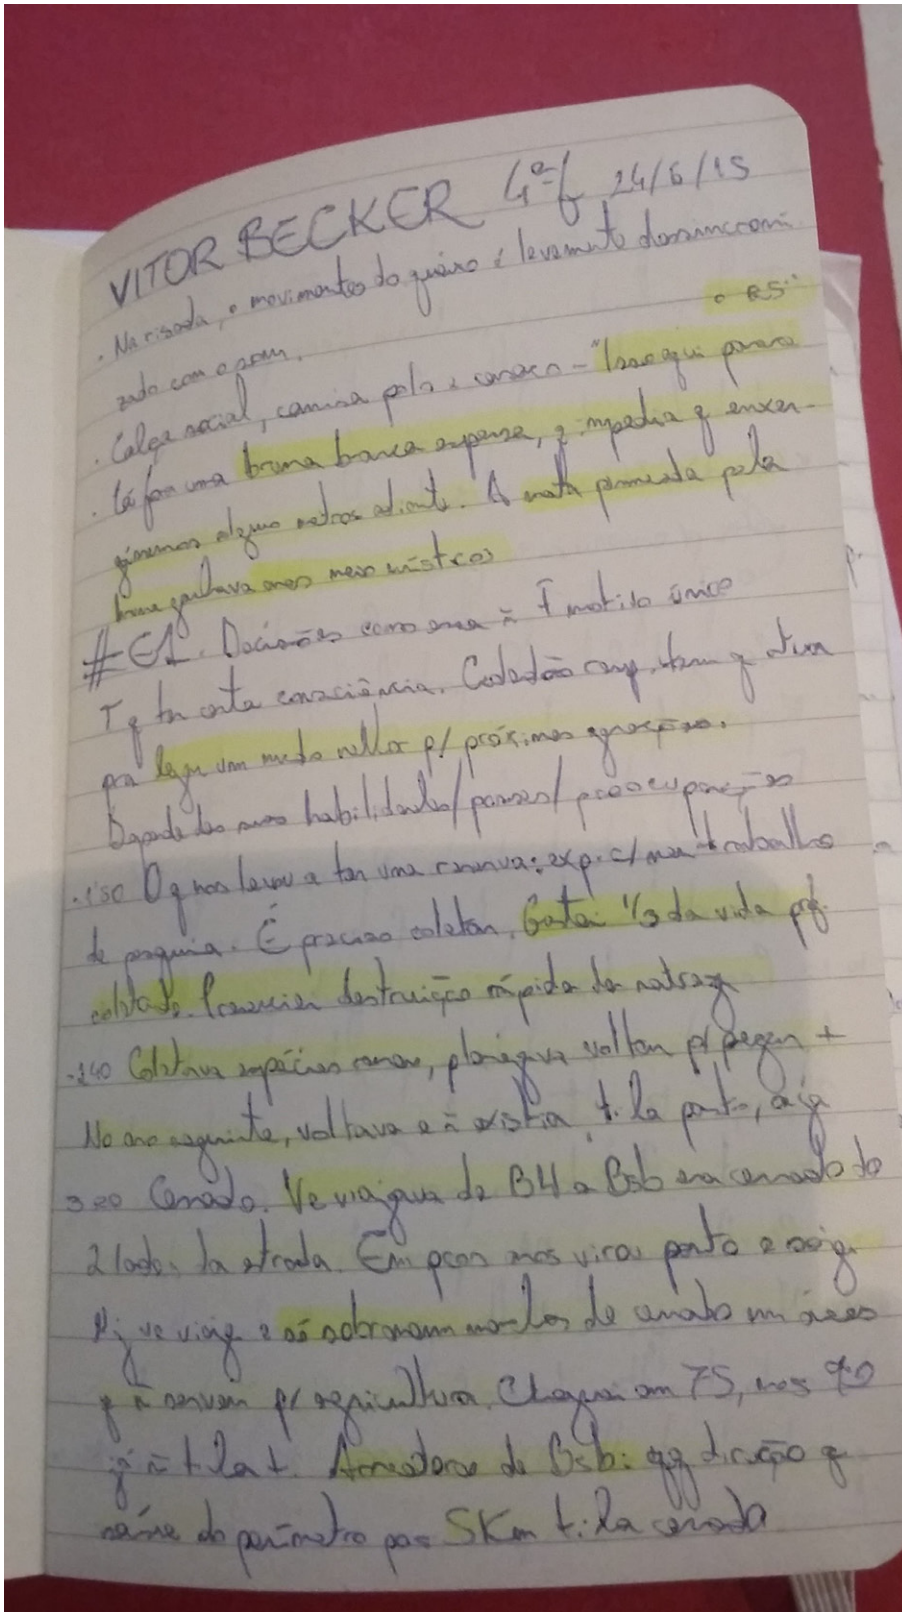 VITOR BECKER 4ª f 24/6/15
. Na risada, o movimentos do queixo é levemente dessincroni
o RS"
zado com o som.
. Calça social, camisa polo e casaco - "Isso aqui parece
. Lá fora uma bruma branca espessa, q impedia q enxer-
gássemos alguns metros adiante. A mata permeada pela
bruma ganhava ares meio místicos
#E1. Decisões como essa ñ T motivo único
T q ter certa consciência. Cidadão tem q
pra legar um mundo melhor p/ próximas gerações.
Depende das suas habilidades/posses/preocupações
.150 O q nos levou a ter uma reserva: exp. c/ meu trabalho
de pesquisa. É preciso coletar. Gastei 1/3 da vida prof.
coletando. Presenciei destruição rápida da natureza
.240 Coletava espécies raras, planejava voltar p/ pegar +
No ano seguinte, voltava e ñ existia + lá pasto, soja
320 Cerrado. Vc viajava de BH a Bsb era cerrado do
2 lados da estrada. Em poucos anos virou pasto e soja
Hj vc viaja e só sobraram manchas de cerrado em áreas
q ñ servem p/ agricultura. Cheguei em 75, nos 90
já ñ + Arredores de Bsb: qq direção q
saísse do perímetro por 5Km tinha cerrado